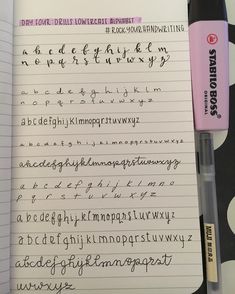 DAY FOUR: DRILLS LOWERCASE ALPHABET
#ROCKYOURHANDWRITING
a b c d e f g h i j k l m
n o p q r s t u v w x y z
a b c d e f g h i j k l m
n o p q r s t u v w x y z
abcdefghijklmnopqrstuvwxyz
abcdefghijklmnopqrstuvwxyz
abcdefghijklmnopqrstuvwxyz
a b c d e f g h i j k l m n o
p q r s t u v w x y z
abcdefghijklmnopqrstuvwxyz
abcdefghijklmnopqrstuvwxyz
abcdefghijklmnopqrst
uvwxyz
STABILO BOSS
ORIGINAL
MUJI